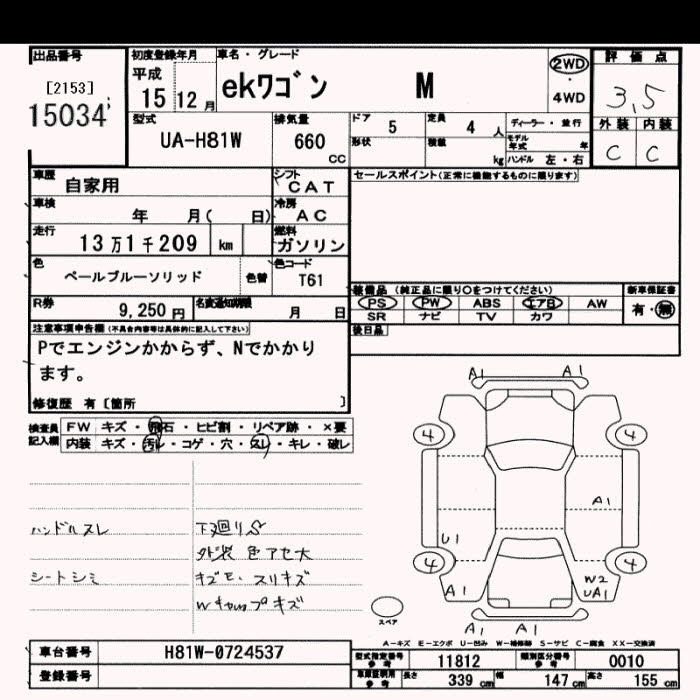 出品番号 初度登録年月 車名・グレード 評価点
[2153] 平成 ekワゴン M 2WD 3,5
15034 15 12月 4WD
型式 排気量 ドア 5 定員 4 人 ディーラー・並行 外装 内装
UA-H81W 660 cc 形状 積載 kg モデル年式 年 C C
ハンドル 左・右
車歴 自家用 シフト CAT セールスポイント(正常に機能するものに限ります)
車検 年 月( 日) 冷房 AC
走行 13万1千209 km 燃料 ガソリン
色 ペールブルーソリッド 色替 色コード T61
装備品 (純正品に限り○をつけてください) 新車保証書
R券 9,250円 名変通知期限 月 日 PS PW ABS エアB AW 有・無
SR ナビ TV カワ
注意事項申告欄(不具合内容等は具体的に記入して下さい) 後日品
Pでエンジンかからず、Nでかかり
ます。
修復歴 有〔箇所 〕
検査員記入欄 FW キズ・飛石・ヒビ割・リペア跡・×要
内装 キズ・汚レ・コゲ・穴・スレ・キレ・破レ
A1 A1
4 4
A1
U1
4 4
A1 W2
UA1
A1 A1
ハンドルスレ 下廻りS
外装 色アセ大
シートシミ キズモ、スリキズ
Wキャップキズ
スペア
A-キズ E-エクボ U-凹み W-補修跡 S-サビ C-腐食 XX-交換済
車台番号 H81W-0724537 型式指定番号 参考 11812 類別区分番号 参考 0010
登録番号 車庫証明用 参考 長さ 339 cm 幅 147 cm 高さ 155 cm